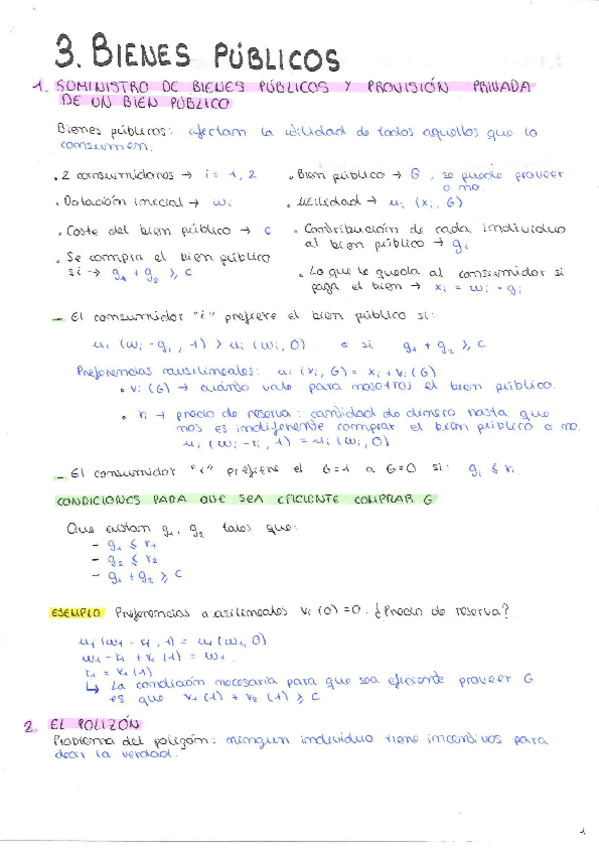 3. BIENES PÚBLICOS
1. SUMINISTRO DE BIENES PÚBLICOS Y PROVISIÓN PRIVADA
DE UN BIEN PÚBLICO
Bienes públicos: afectan la utilidad de todos aquellos que lo
consumen.
• 2 consumidores → i = 1, 2
• Dotación inicial → wi
• Coste del bien público → c
• Se compra el bien público
si → g1 + g2 ≥ c
• Bien público → G, se puede proveer
o no.
• Utilidad → ui (xi, G)
• Contribución de cada individuo
al bien público → gi
• Lo que le queda al consumidor si
paga el bien → xi = wi - gi
- El consumidor "i" prefiere el bien público si:
ui (wi - gi, 1) > ui (wi, 0) o si g1 + g2 ≥ c
Preferencias cuasilineales: ui (xi, G) = xi + vi (G)
• vi (G) → cuánto vale para nosotros el bien público.
• ri → precio de reserva: cantidad de dinero hasta que
nos es indiferente comprar el bien público o no.
ui (wi - ri, 1) = ui (wi, 0)
- El consumidor "i" prefiere el G=1 a G=0 si: gi ≤ ri
CONDICIONES PARA QUE SEA EFICIENTE COMPRAR G
Que existan g1, g2 tales que:
- g1 ≤ r1
- g2 ≤ r2
- g1 + g2 ≥ c
EJEMPLO Preferencias cuasilineales vi (0) = 0. ¿Precio de reserva?
u1 (w1 - r1, 1) = u1 (w1, 0)
w1 - r1 + v1 (1) = w1
r1 = v1 (1)
↳ La condición necesaria para que sea eficiente proveer G
es que v1 (1) + v2 (1) ≥ c
2. EL POLIZÓN
Problema del polizón: ningun individuo tiene incentivos para
decir la verdad.
1